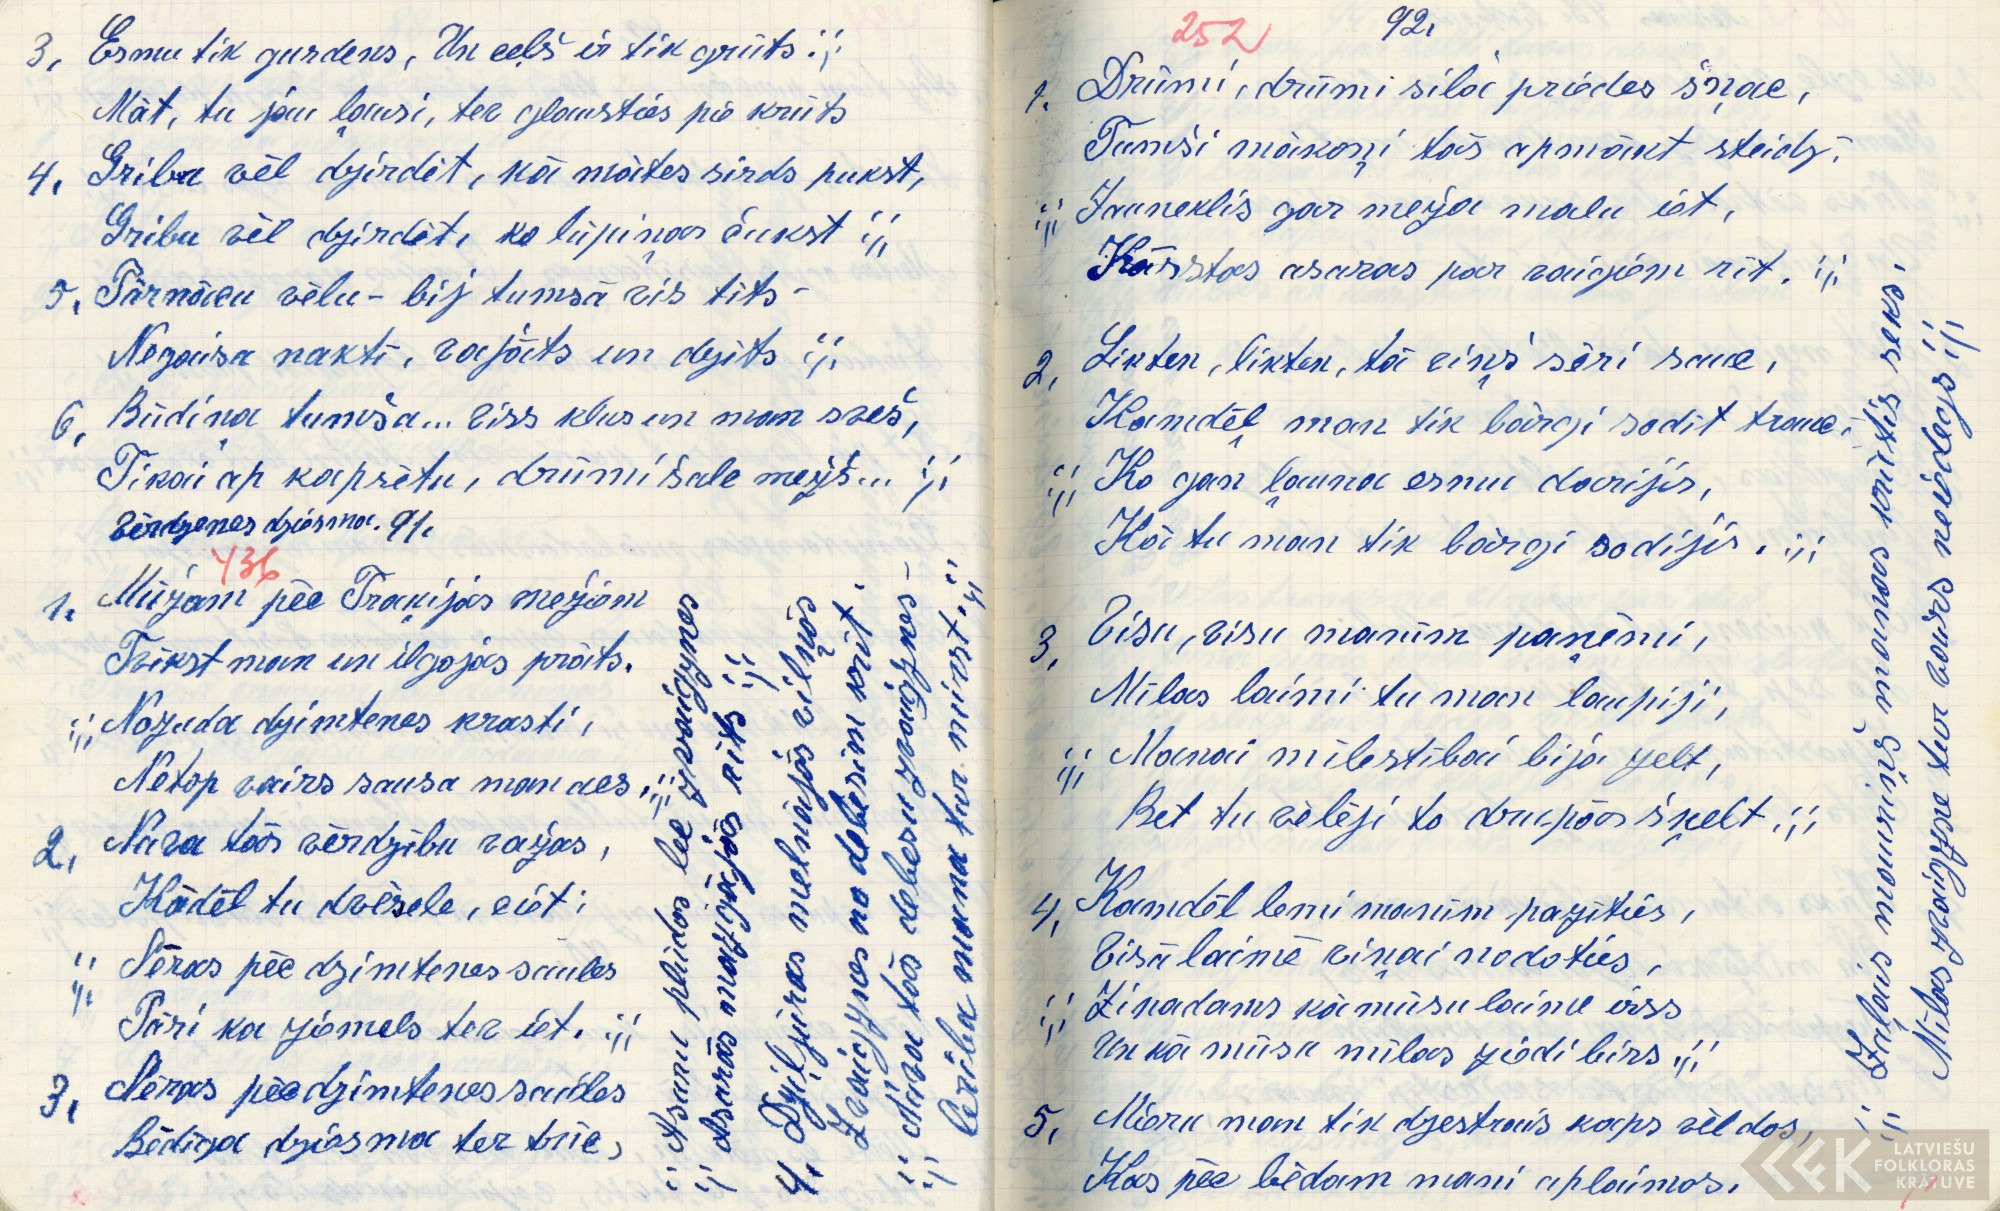 3, Esmu tik gurdens, Un ceļš ir tik grūts :;:
Māt, tu jau ļausi, tev glausties pie krūts
4, Gribu vēl dzirdēt, kā mātes sirds pukst,
Gribu vēl dzirdēt, ko lūpiņas čukst :;:
5, Pārnācu vēlu - bij tumsā vis tīts -
Negaisa naktī, vajāts un dzīts :;:
6, Būdiņa tumša... viss kluss un man svešs,
Tikai ap kapsētu, drūmi šalc mežš... :;:
Verdzenes dziesma. 91.
436
1. Mūžam pēc Traķijas mežiem
Tvīkst man un ilgojās prāts.
:;: Nozuda dzimtenes krasti,
Netop vairs sausa man acs. :;:
2, Nāra tās vērdzību važas,
Kādēļ tu dvēsele, ciet;
:;: Sēras pēc dzimtenes saules
Pāri kā ziemels tev iet. :;:
3, Sēras pēc dzimtenes saules
Bēdīga dziesma tev trīc,
:;: Asaru pludos lec zvaigznes
:;: Asarās mazgājās rīts :;:
4. Dziļjūras melnajās vilņās
Zvaigznes no debesīm krīt.
:;: Nāvā tās debesu zvaigznes -
Cerība mana tur mirst. :;:
252
92.
1. Drūmi, drūmi silā priedes šņac,
Tumši mākoņi tās apmākt steidz.
:;: Jauneklis gar meža malu iet,
Kārstas asaras par vaigiem rit. :;:
2, Likten, likten, tā viņš sēri sauc,
Kamdēļ man tik bārgi sodīt trauc;
:;: Ko gan ļauna esmu darijis,
Kā tu man tik bārgi sodijis. :;:
3, Visu, visu manim paņēmi,
Mīlas laimi tu man laupiji,
:;: Manai mīlestībai bija zelt,
Bet tu vēlēji to drupās šķelt. :;:
4, Kamdēļ lēmi manim pazīties,
Visā laimē viņai nodoties,
:;: Zinadams kā mūsu laime irss
Un kā mūsu mīlas ziedi birs. :;:
5, Mieru man tik dzestrais kaps vēl dos,
Kas pēc bēdam mani aplaimos.
:;: Zaļais mauriņš manas krūtis seks,
Mīlas zvaigzne tur vairs neiedegs :;:
LATVIEŠU
FOLKLORAS
KRĀTUVE